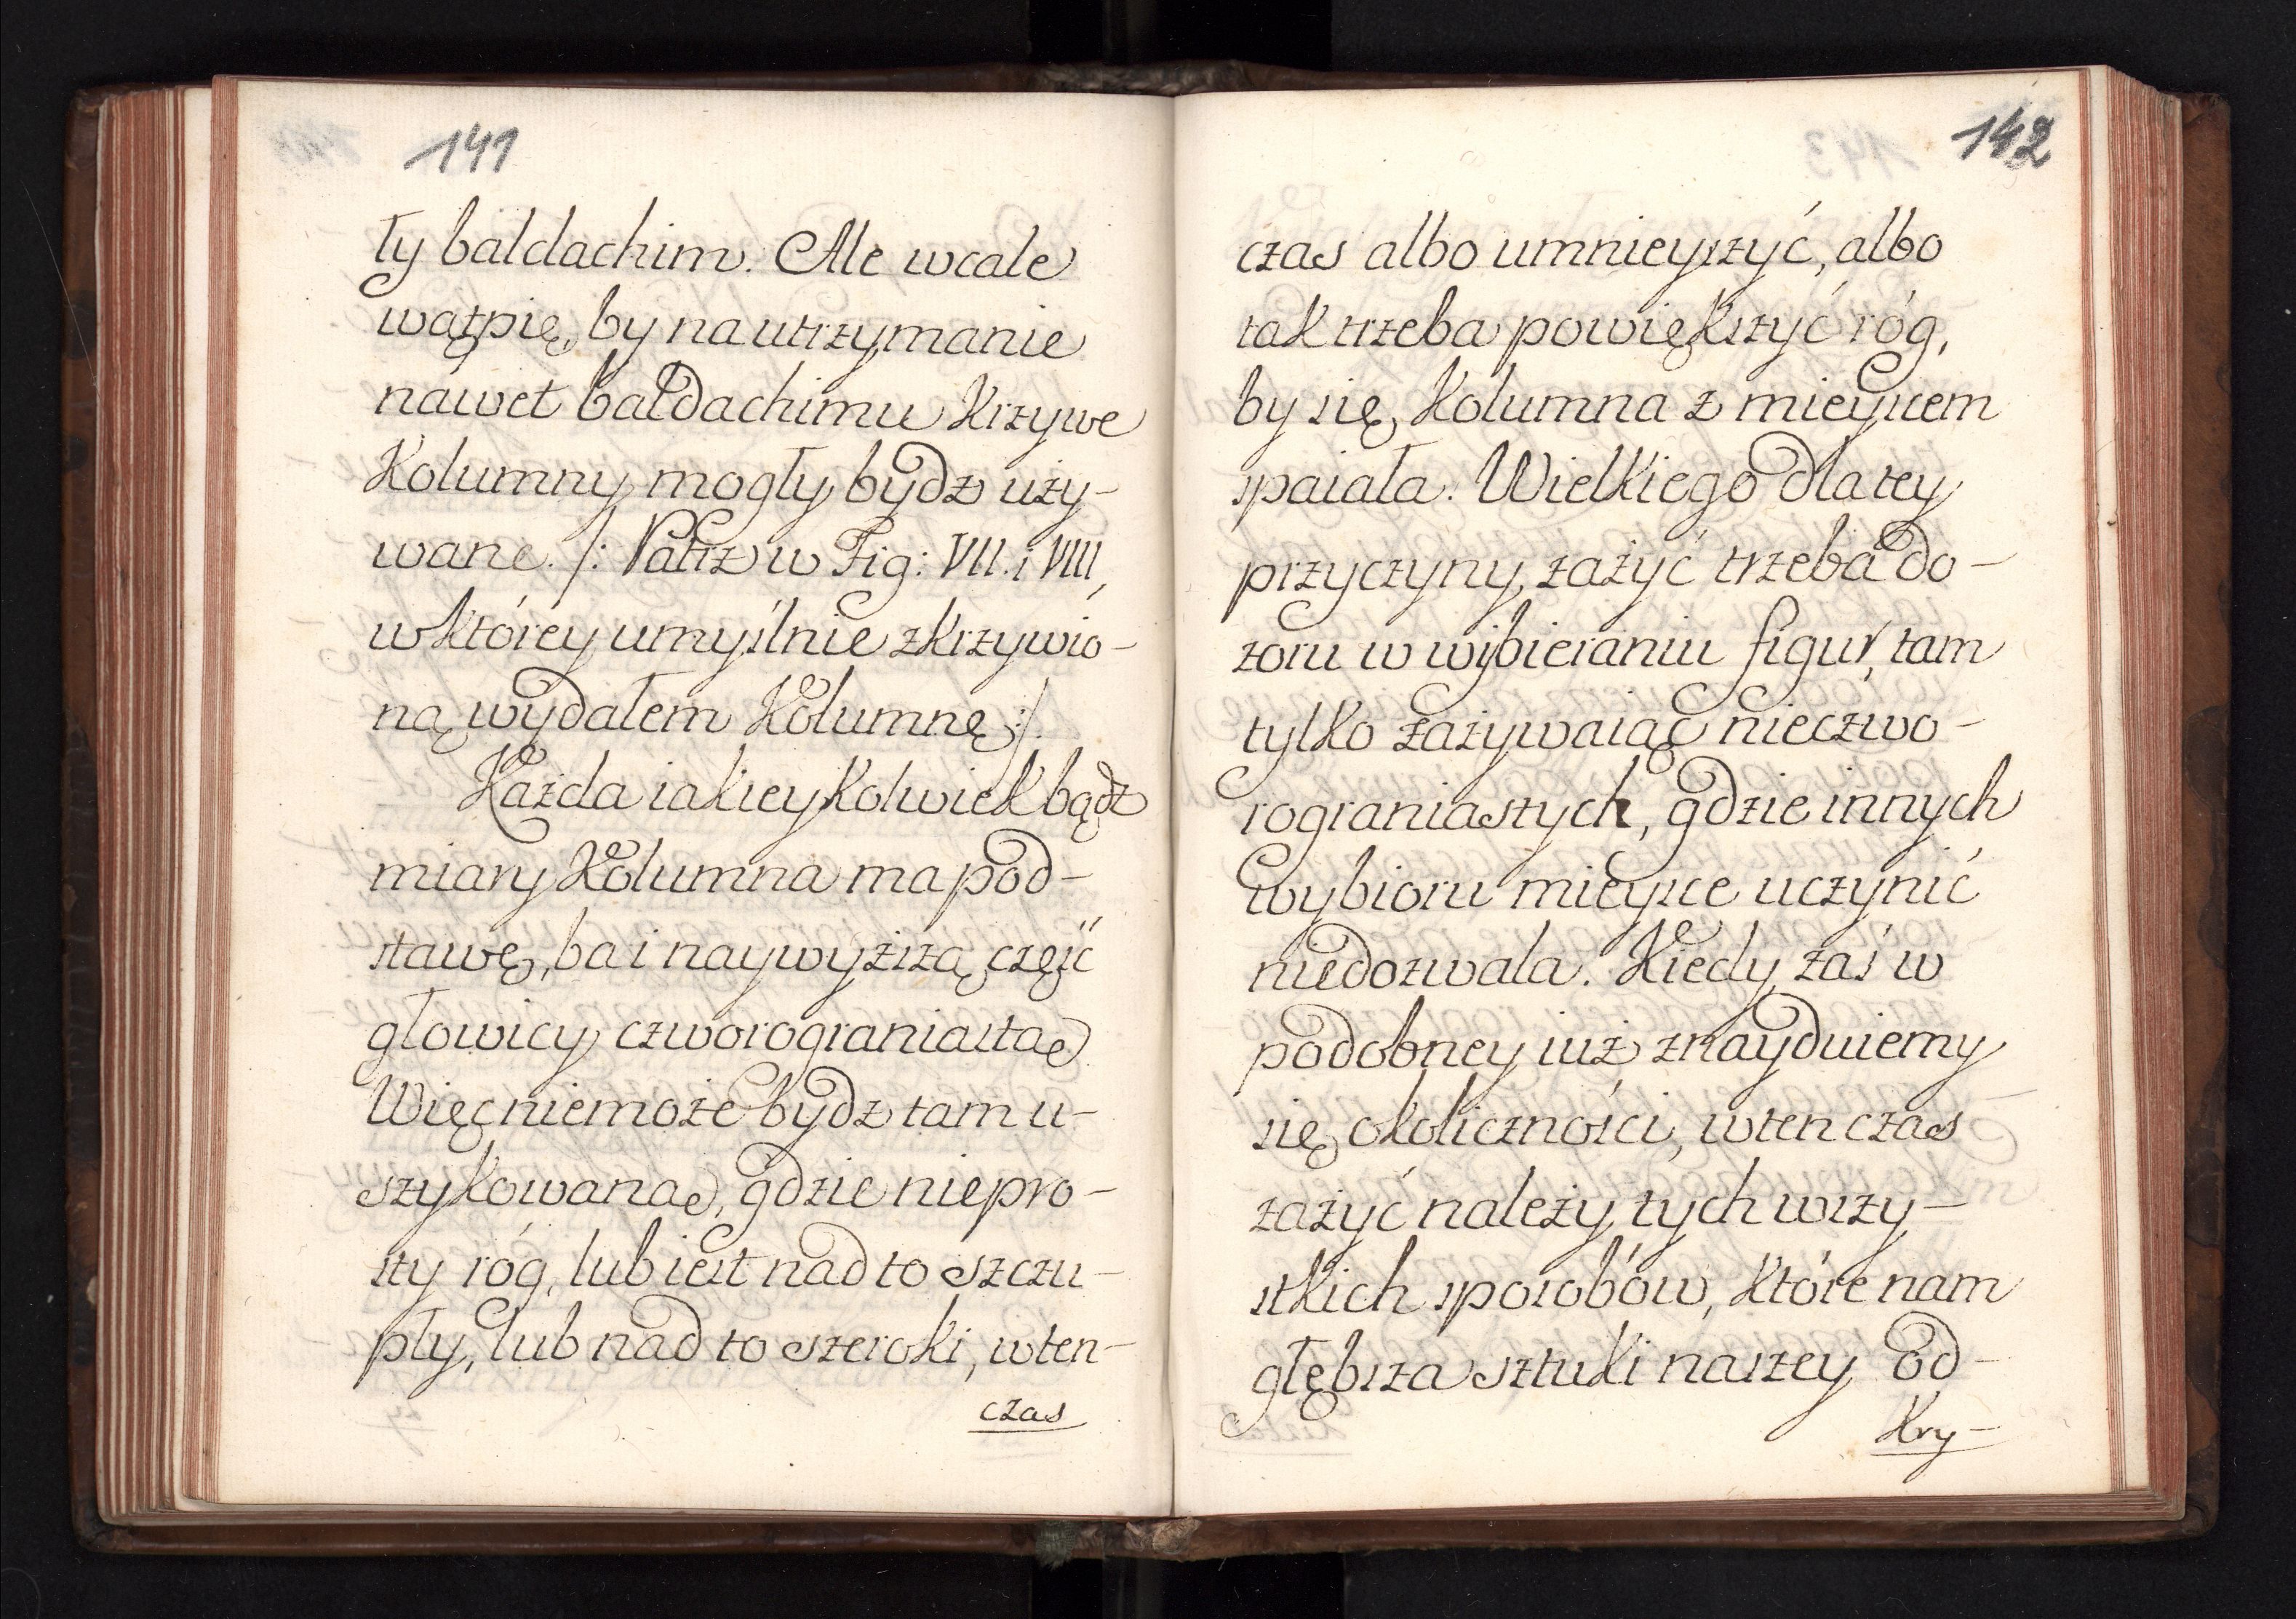 141
ły baldachim. Ale wcale
wątpię, by na utrzymanie
nawet bałdachimu krzywe
kolumny mogły bydz uży-
wane. /: Patrz w Fig: VII. i VIII,
w którey umyślnie zkrzywio-
ną wydałem kolumnę :/.
Każda iakieykolwiek bądz
miary kolumna ma pod-
stawę, ba i naywyższą część
głowicy czworograniastą.
Więc niemoże bydz tam u-
szykowaną, gdzie niepro-
sty róg, lub iest nad to szczu-
pły, lub nad to szeroki, wten-
czas
142
czas albo umnieyszyć, albo
tak trzeba powiększyć róg,
by się kolumna z mieyscem
spaiała. Wielkiego dla tey
przyczyny zażyć trzeba do-
zoru w wybieraniu figur, tam
tylko zażywaiąc nieczwo-
rograniastych, gdzie innych
wybioru mieysce uczynić
niedozwala. Kiedy zaś w
podobney iuż znayduiemy
się okoliczności, wten czas
zażyć należy tych wszy-
stkich sposobów, które nam
głębsza sztuki naszey od-
kry-